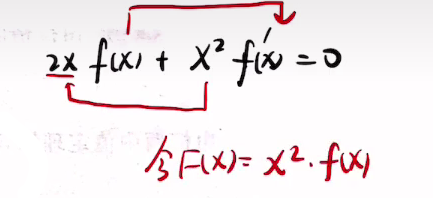 2x f(x) + x² f'(x) = 0
令F(x) = x²·f(x)